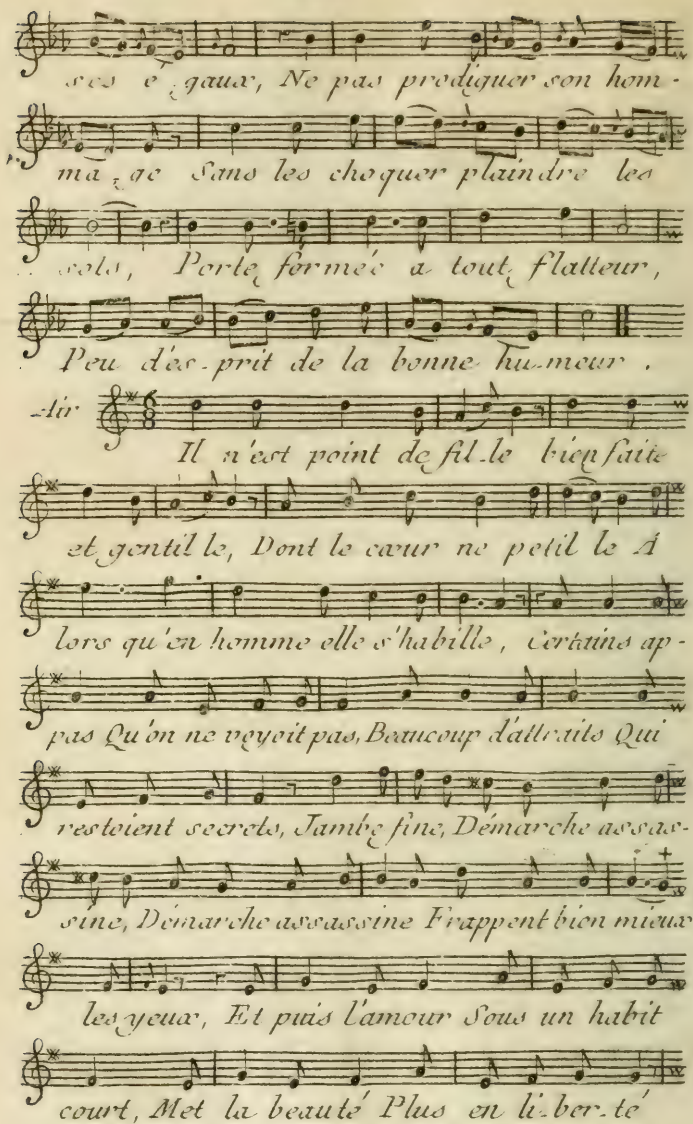 ses e-gaux, Ne pas prodiguer son hom-
ma-ge Sans les choquer plaindre les
sots, Porte fermée a tout flatteur,
Peu d'es-prit de la bonne hu-meur.
Air
6
8
Il n'est point de fil-le bien faite
et gentil le, Dont le cœur ne petil le A
lors qu'en homme elle s'habille, Certains ap-
pas Qu'on ne voyoit pas, Beaucoup d'attraits Qui
restoient secrets, Jambe fine, Démarche assas-
sine, Démarche assassine Frappent bien mieux
les yeux, Et puis l'amour Sous un habit
court, Met la beauté Plus en li-ber-té